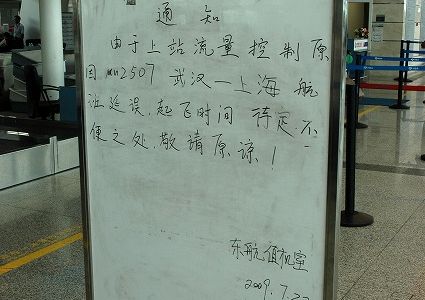 通知
由于上站流量控制原
因mu2507 武汉—上海 航
班延误,起飞时间 待定,不
便之处,敬请原谅!
东航值机室
2009.7.22